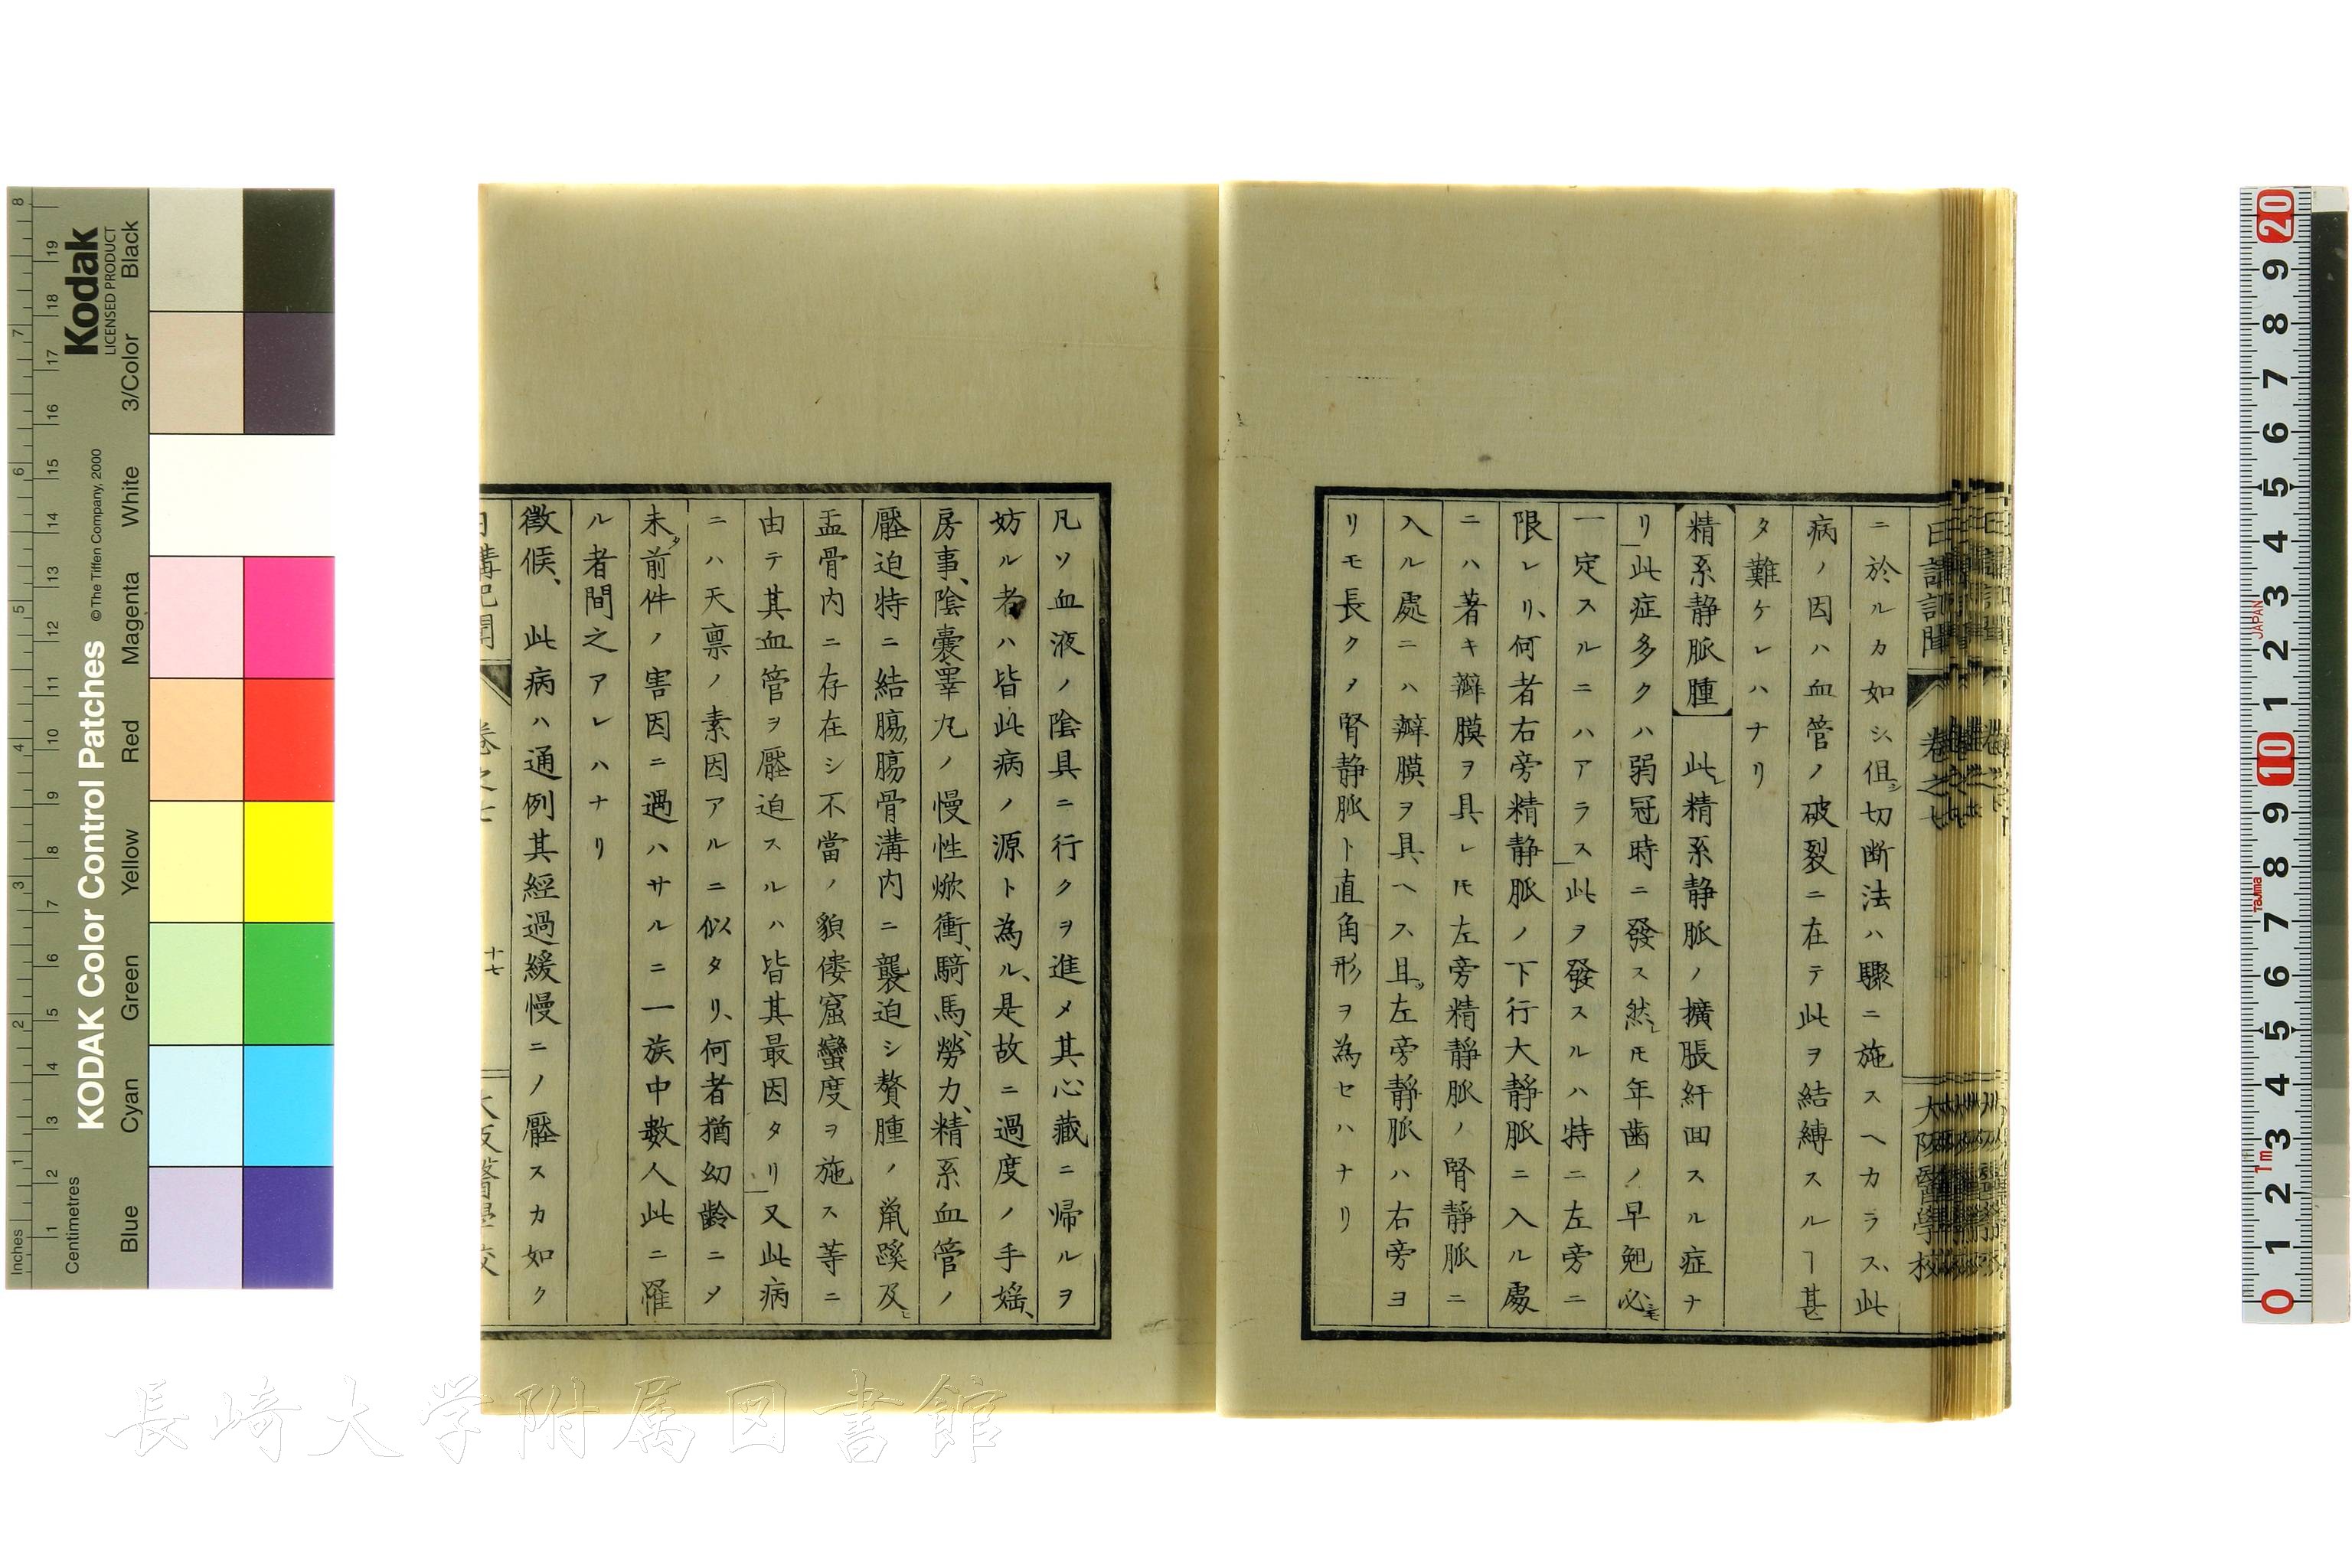 日講記聞 卷之七 大阪醫學校
ニ於ルカ如シ、但シ切断法ハ驟ニ施スヘカラス、此
病ノ因ハ血管ノ破裂ニ在テ此ヲ結縛スルヿ甚
タ難ケレハナリ
精系静脈腫 此レ精系静脈ノ擴脹紆回スル症ナ
リ此症多クハ弱冠時ニ發ス然レ𪜈年歯ノ早晩必スモ
一定スルニハアラス此ヲ發スルハ特ニ左旁ニ
限レリ、何者右旁精静脈ノ下行大静脈ニ入ル處
ニハ著キ瓣膜ヲ具レ𪜈左旁精静脈ノ腎静脈ニ
入ル處ニハ瓣膜ヲ具ヘス且ツ左旁静脈ハ右旁ヨ
リモ長クメ腎静脈ト直角形ヲ為セハナリ
凡ソ血液ノ陰具ニ行クヲ進メ其心藏ニ帰ルヲ
妨ル者ハ皆此病ノ源ト為ル、是故ニ過度ノ手婬、
房事、陰囊睾丸ノ慢性焮衝、騎馬、勞力、精系血管ノ
壓迫特ニ結膓、膓骨溝内ニ襲迫シ贅腫ノ鼠蹊及ヒ
盂骨内ニ存在シ不當ノ貌僂窟蠻度ヲ施ス等ニ
由テ其血管ヲ壓迫スルハ皆其最因タリ又此病
ニハ天禀ノ素因アルニ似タリ、何者猶幼齡ニメ
未タ前件ノ害因ニ遇ハサルニ一族中數人此ニ罹
ル者間之アレハナリ
徴候、 此病ハ通例其經過緩慢ニノ壓スカ如ク
日講記聞 卷之七 十七 大阪醫學校
KODAK Color Control Patches
Kodak
LICENSED PRODUCT
© The Tiffen Company, 2000
Inches 1 2 3 4 5 6 7 8
Centimetres 1 2 3 4 5 6 7 8 9 10 11 12 13 14 15 16 17 18 19
Blue Cyan Green Yellow Red Magenta White 3/Color Black
20 9 8 7 6 5 4 3 2 1 10 9 8 7 6 5 4 3 2 1 0
JAPAN
Tajima
1m
長崎大学附属図書館